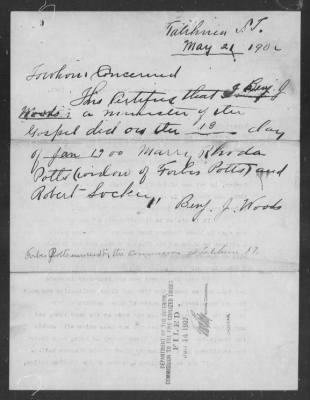 Talihina I.T.
May 21 1902
To whom Concerned
This Certifies that I Benj. J.
Woods; a minister of the
Gospel did on the 18 day
of Jan 1900 Marry Rhoda
Potts (widow of Forbis Potts) and
Robert Locke,,
Benj. J. Woods
Forbis Potts
Talihina I.T.
DEPARTMENT OF THE INTERIOR,
COMMISSION TO THE FIVE CIVILIZED TRIBES.
FILED
14 1902